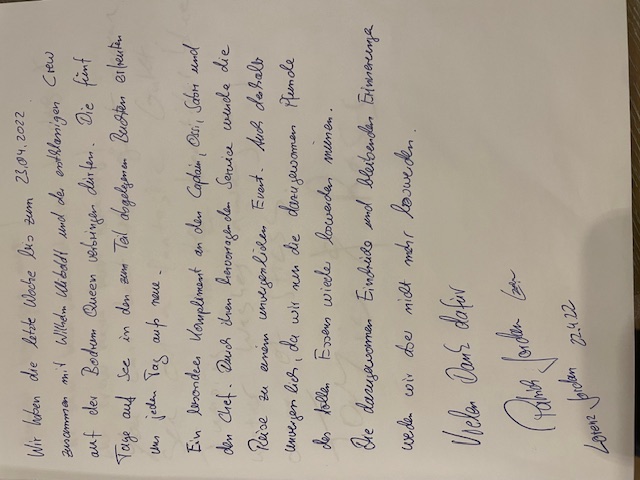 Wir haben die letzte Woche bis zum 23.04.2022
zusammen mit Wilhelm und der erstklassigen Crew
auf der Bodrum Queen verbringen dürfen. Die fünf
Tage auf See in den zum Teil abgelegenen Buchten erfreuten
uns jeden Tag aufs neue.
Ein besonderes Kompliment an den Captain, Ossi, und
den Chef. Durch ihren hervorragenden Service wurde die
Reise zu einem unvergesslichen Event. Auch deshalb
unvergesslich, da wir nun die dazugewonnen Pfunde
des tollen Essens wieder loswerden müssen.
Die dazugewonnen Eindrücke und bleibenden Erinnerungen
werden wir aber nicht mehr loswerden.
Vielen Dank dafür
Patrick Jorden
Lorenz Jorden 22.4.22